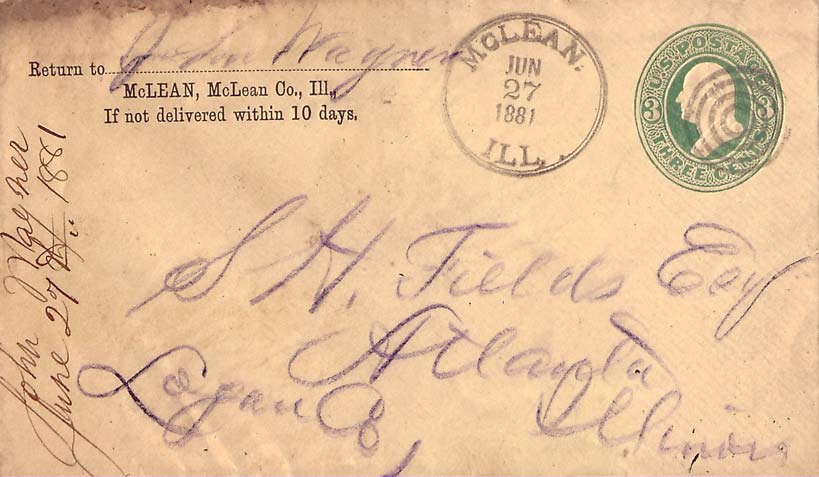 John Wagner
Return to
McLEAN, McLean Co., Ill.,
If not delivered within 10 days.
McLEAN.
JUN
27
1881
ILL.
U.S. POSTAGE
3 3
THREE CENTS
S H. Fields Esq
Atlanta
Logan Co, Illinois
John Wagner
June 27th 1881